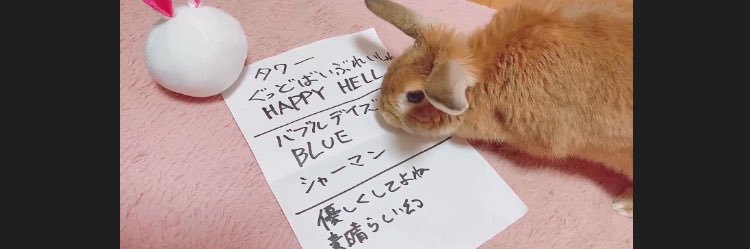 タワー
ぐっどばいぶれいしょ
HAPPY HELL
バブルデイズ
BLUE
シャーマン
優しくしてよね
素晴らしい幻